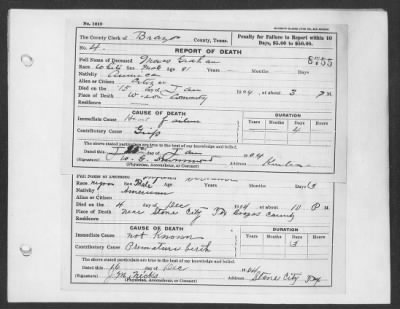 No. 1010
The County Clerk of Brazos County, Texas.
Penalty for Failure to Report within 10 Days, $5.00 to $50.00.
No. 4.
REPORT OF DEATH
8755
Full Name of Deceased Graham
Race White Sex Male Age 81 Years Months Days
Nativity America
Alien or Citizen Citizen
Died on the 15 day of Jan 1904, at about 3 P M.
Place of Death
Residence
CAUSE OF DEATH
DURATION
Immediate Cause Heart Failure
Years Months Days Hours
Contributory Cause Grip
4
The above stated particulars are true to the best of my knowledge and belief.
Dated this 15 day of Jan 1904
(Signature) W. G. Hammond Address
(Physician, Accoucheur, or Coroner)
Full Name of Deceased
Race Negro Sex Male Age Years Months Days 3
Nativity American
Alien or Citizen
Died on the 4 day of Dec 1904 at about 10 P M.
Place of Death Near Stone City Tex Brazos County
Residence
CAUSE OF DEATH
DURATION
Immediate Cause Not Known
Years Months Days Hours
Contributory Cause Premature birth
3
The above stated particulars are true to the best of my knowledge and belief.
Dated this 16 day of Dec 1904
(Signature) J. M. Nicks Address Stone City Tex
(Physician, Accoucheur, or Coroner)